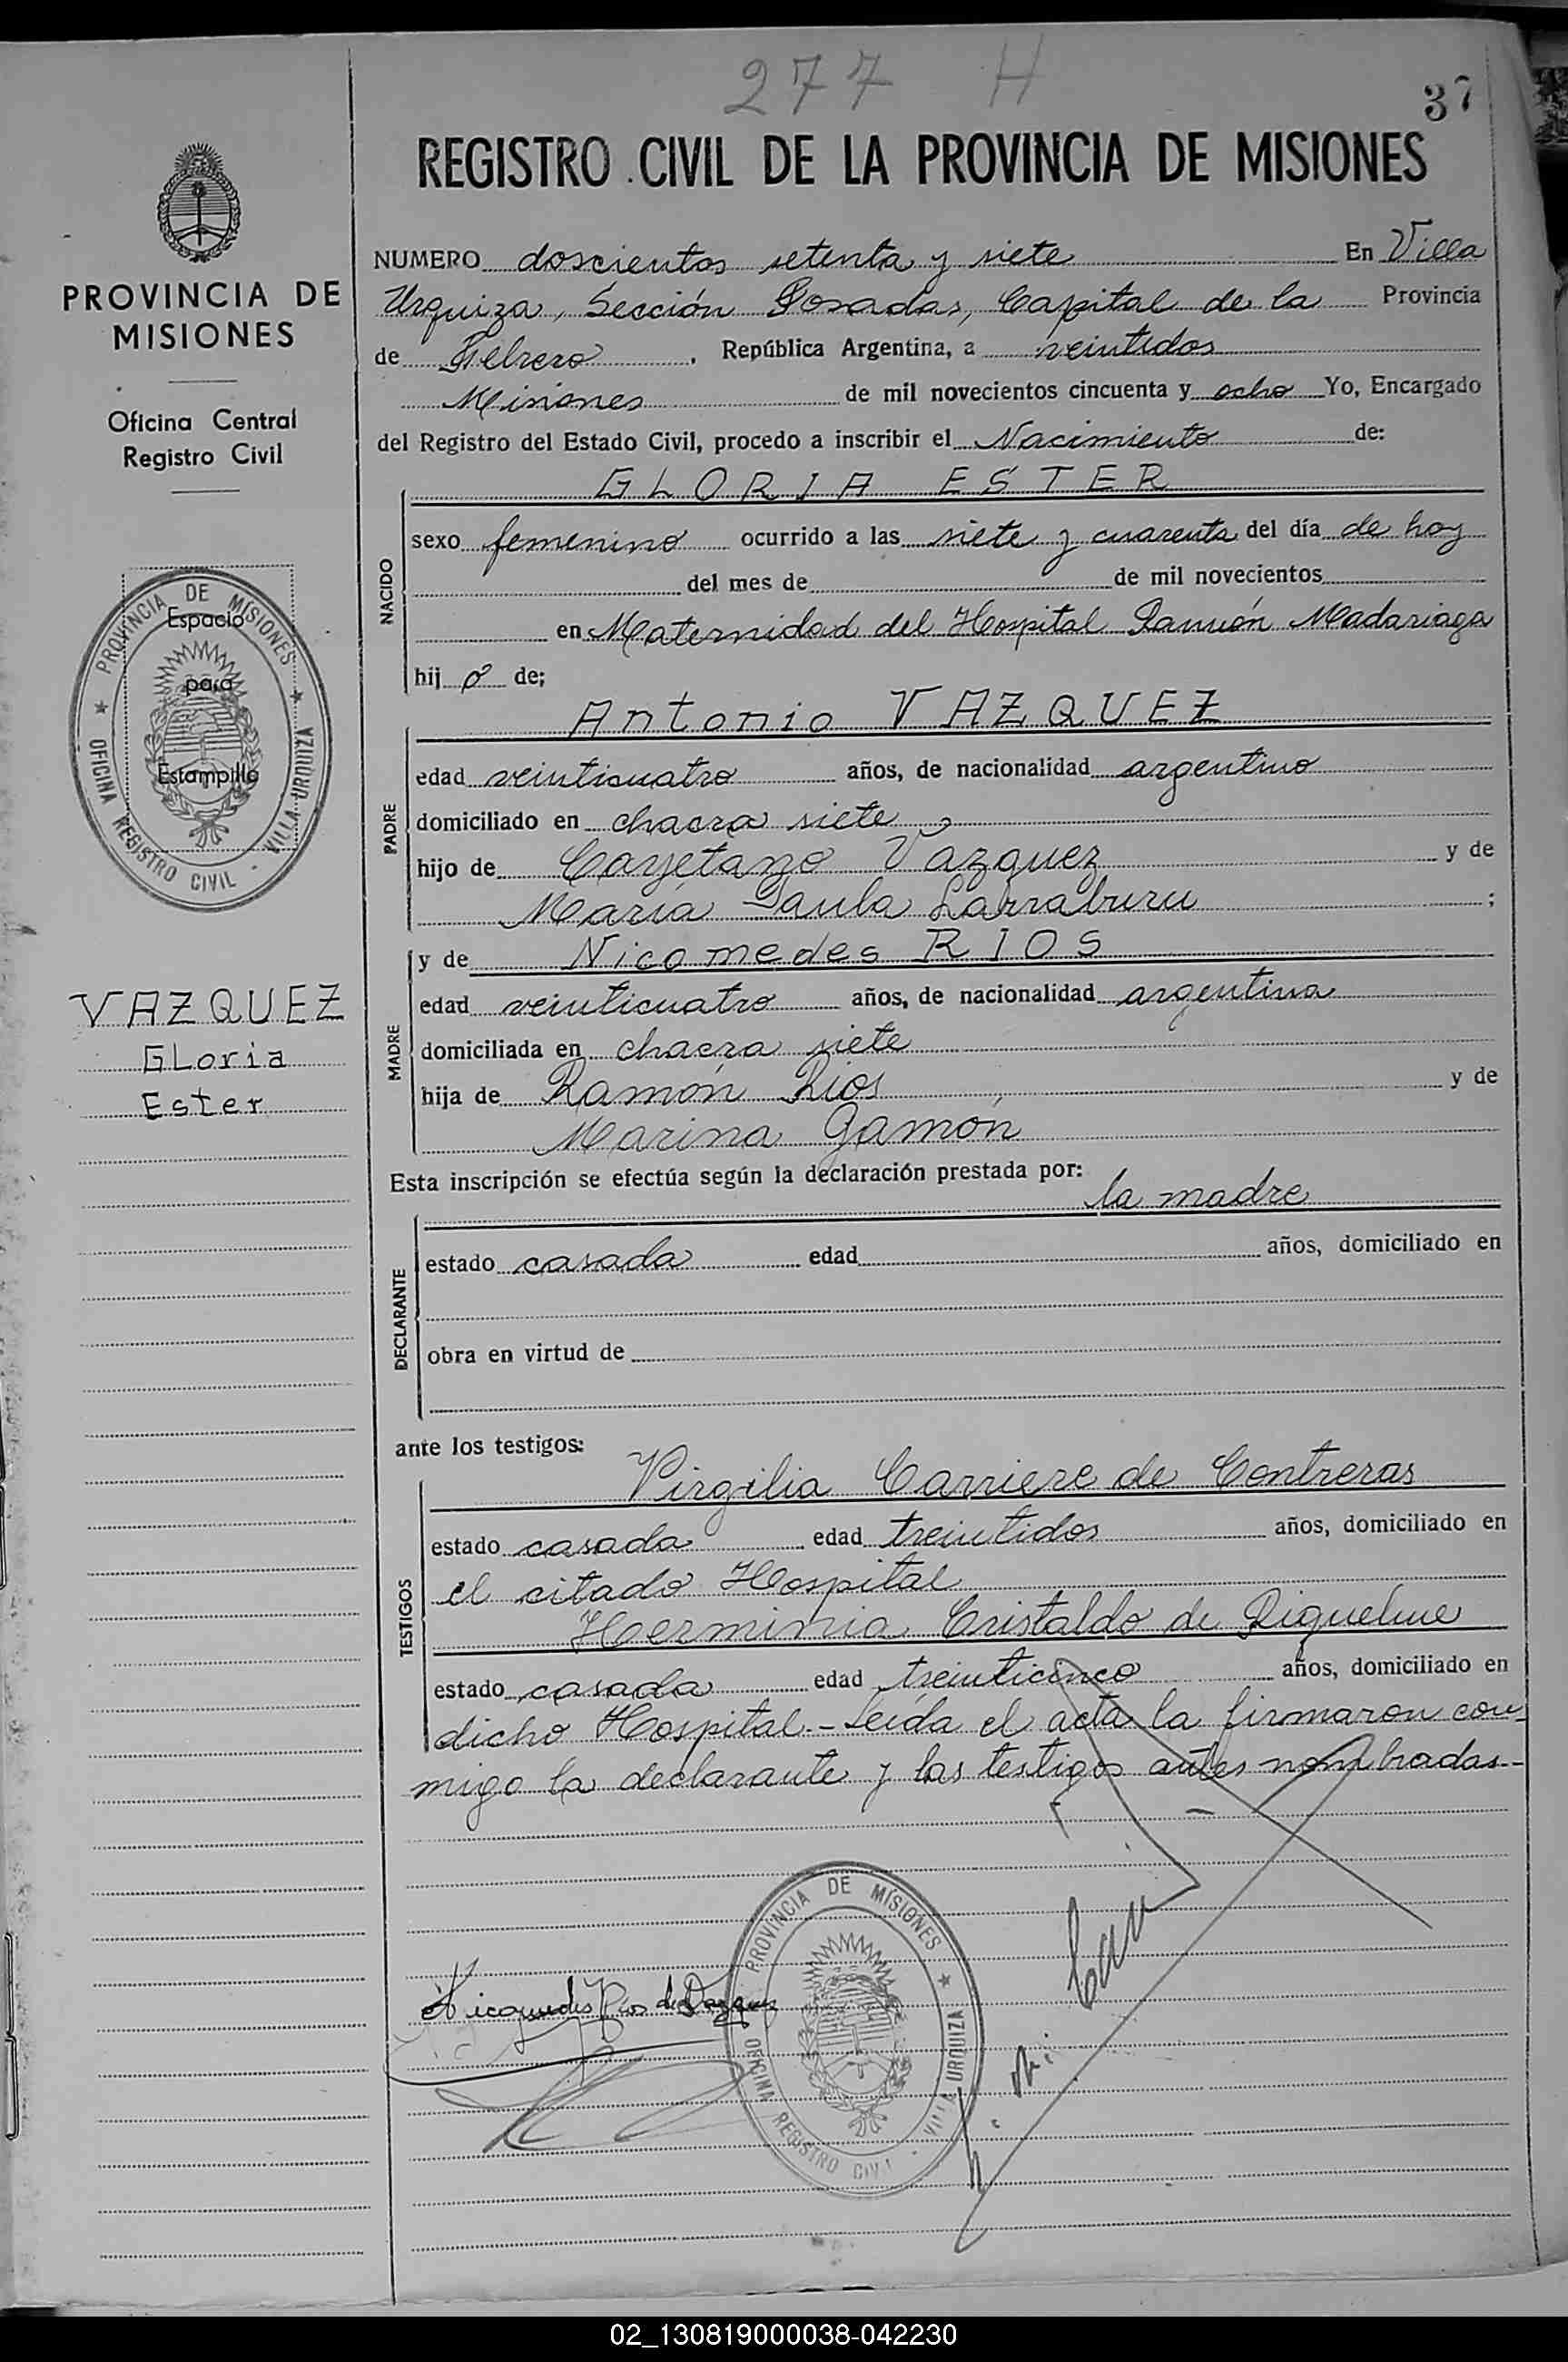 277 H
37
REGISTRO CIVIL DE LA PROVINCIA DE MISIONES
PROVINCIA DE
MISIONES
Oficina Central
Registro Civil
PROVINCIA DE MISIONES
OFICINA REGISTRO CIVIL - VILLA URQUIZA
Espacio
para
Estampilla
VAZQUEZ
GLoria
Ester
NUMERO doscientos setenta y siete En Villa
Urquiza, Sección Posadas, Capital de la Provincia
de Febrero, República Argentina, a veintidos
Misiones de mil novecientos cincuenta y ocho Yo, Encargado
del Registro del Estado Civil, procedo a inscribir el Nacimiento de:
NACIDO
GLORIA ESTER
sexo femenino ocurrido a las siete y cuarenta del día de hoy
del mes de de mil novecientos
en Maternidad del Hospital Ramón Madariaga
hij de;
PADRE
Antonio VAZQUEZ
edad veinticuatro años, de nacionalidad argentino
domiciliado en chacra siete
hijo de Cayetano Vazquez y de
María Paula Larraburu ;
MADRE
y de Nicomedes RIOS
edad veinticuatro años, de nacionalidad argentina
domiciliada en chacra siete
hija de Ramón Rios y de
Marina Gamón
Esta inscripción se efectúa según la declaración prestada por:
la madre
DECLARANTE
estado casada edad años, domiciliado en
obra en virtud de
ante los testigos:
TESTIGOS
Virgilia Carriere de Contreras
estado casada edad treintidos años, domiciliado en
el citado Hospital
Herminia Cristaldo de Riquelme
estado casada edad treinticinco años, domiciliado en
dicho Hospital.- Leída el acta la firmaron con-
migo la declarante y las testigos antes nombradas.-
Nicomedes Rios de Vazquez
PROVINCIA DE MISIONES
OFICINA REGISTRO CIVIL - VILLA URQUIZA
02_130819000038-042230